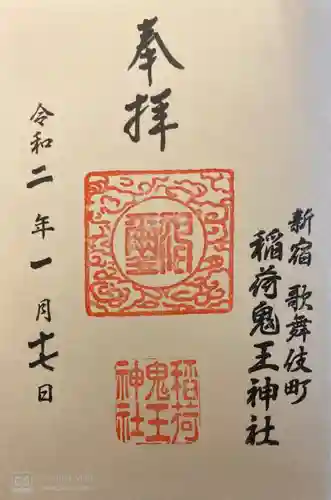 奉拝
新宿 歌舞伎町
稲荷鬼王神社
稲荷
鬼王
神社
令和二年一月十七日